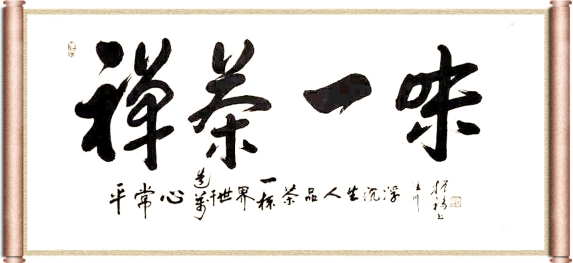 禅茶一味
平常心造萬千世界一杯茶品人生沉浮